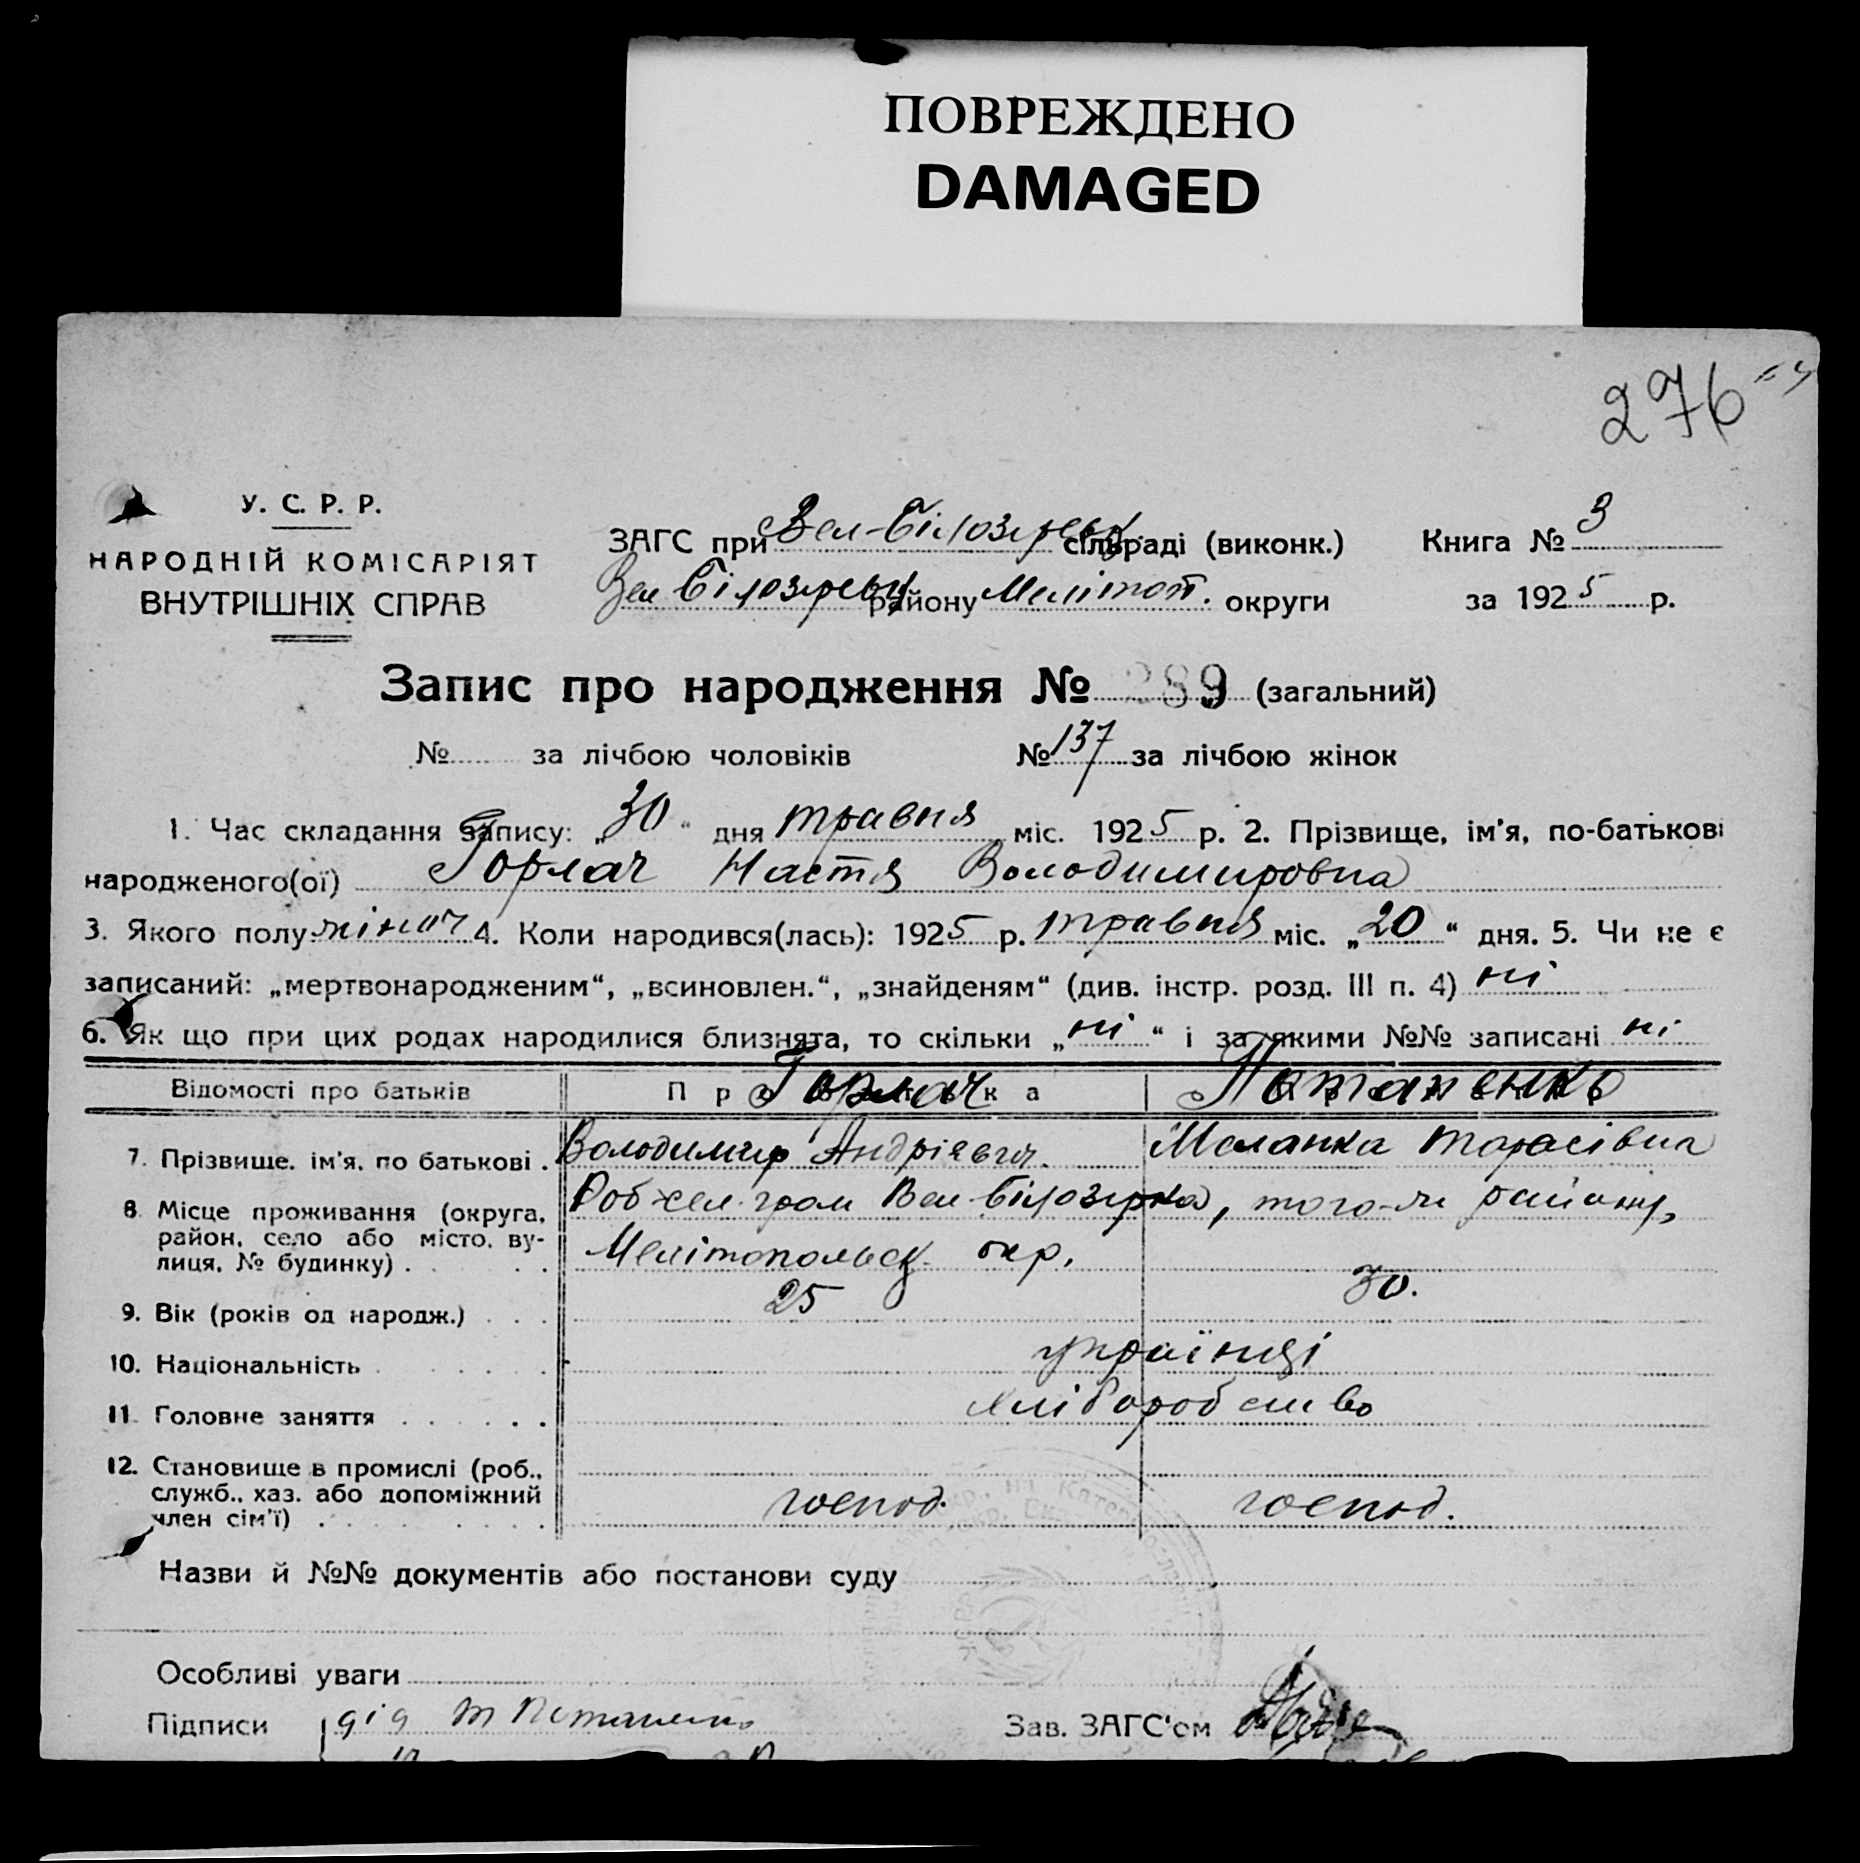 ПОВРЕЖДЕНО
DAMAGED
276
У. С. Р. Р.
НАРОДНІЙ КОМІСАРІЯТ
ВНУТРІШНІХ СПРАВ
ЗАГС при Вел-Білозерськ сільраді (виконк.)
Вел Білозерськ району Меліт. округи
Книга № 3
за 1925 р.
Запис про народження № 289 (загальний)
№ за лічбою чоловіків № 137 за лічбою жінок
1. Час складання запису: „30" дня травня міс. 1925 р. 2. Прізвище, ім'я, по-батькові
народженого(ої) Горлач Настя Володимировна
3. Якого полу жіноч 4. Коли народився(лась): 1925 р. травня міс. „20" дня. 5. Чи не є
записаний: „мертвонародженим", „всиновлен.", „знайденям" (див. інстр. розд. III п. 4) ні
6. Як що при цих родах народилися близнята, то скільки „ні" і за якими №№ записані ні
Відомості про батьків Горлач Потапенко
7. Прізвище. ім'я. по батькові . Володимир Андріевич. Меланка Тарасівна
8 Місце проживання (округа, район, село або місто, вулиця, № будинку) . . . Вел Білозирка, того-ж району,
Мелітопольск. окр.
9. Вік (років од народж.) . . . 25 30.
10. Національність українці
11. Головне заняття хліборобство
12. Становище в промислі (роб., служб., хаз. або допоміжний член сім'ї) господ. господ.
Назви й №№ документів або постанови суду
Особливі уваги
Підписи дід Т Потапенко Зав. ЗАГС'ом